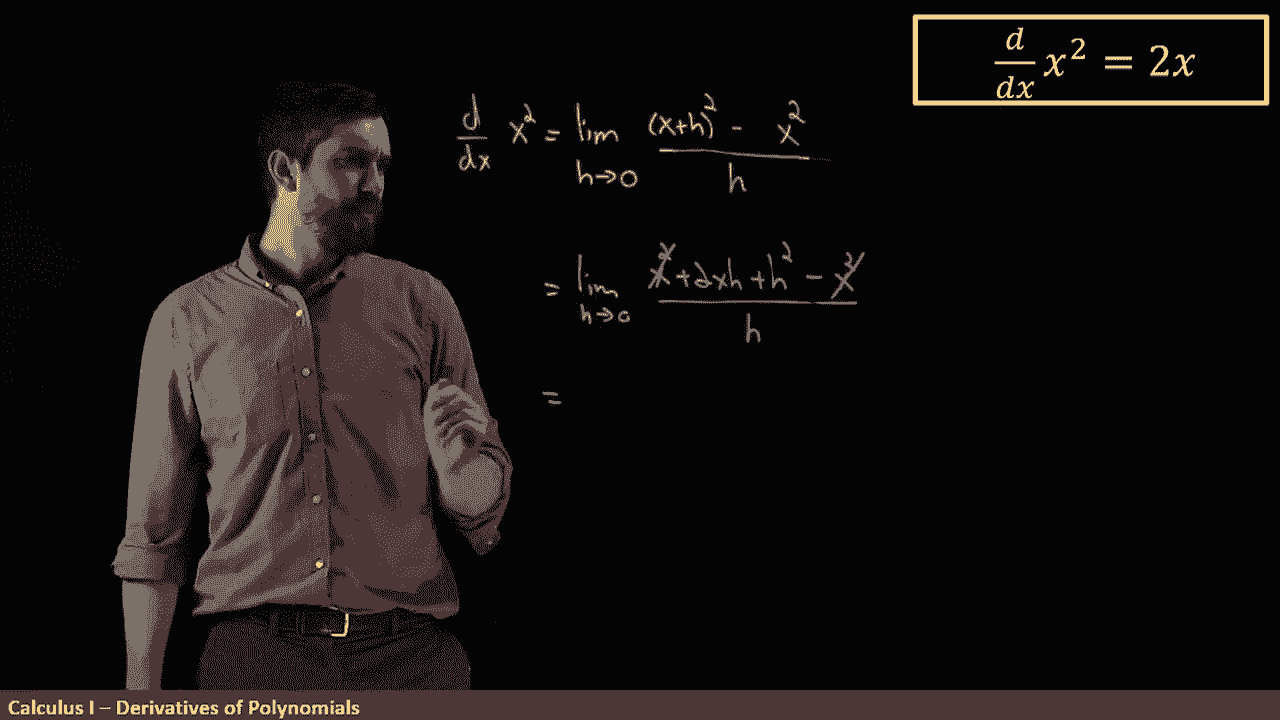 d/dx x² = 2x
d/dx x² = lim h→0 (x+h)² - x² / h
= lim h→0 x² + 2xh + h² - x² / h
=
Calculus I – Derivatives of Polynomials